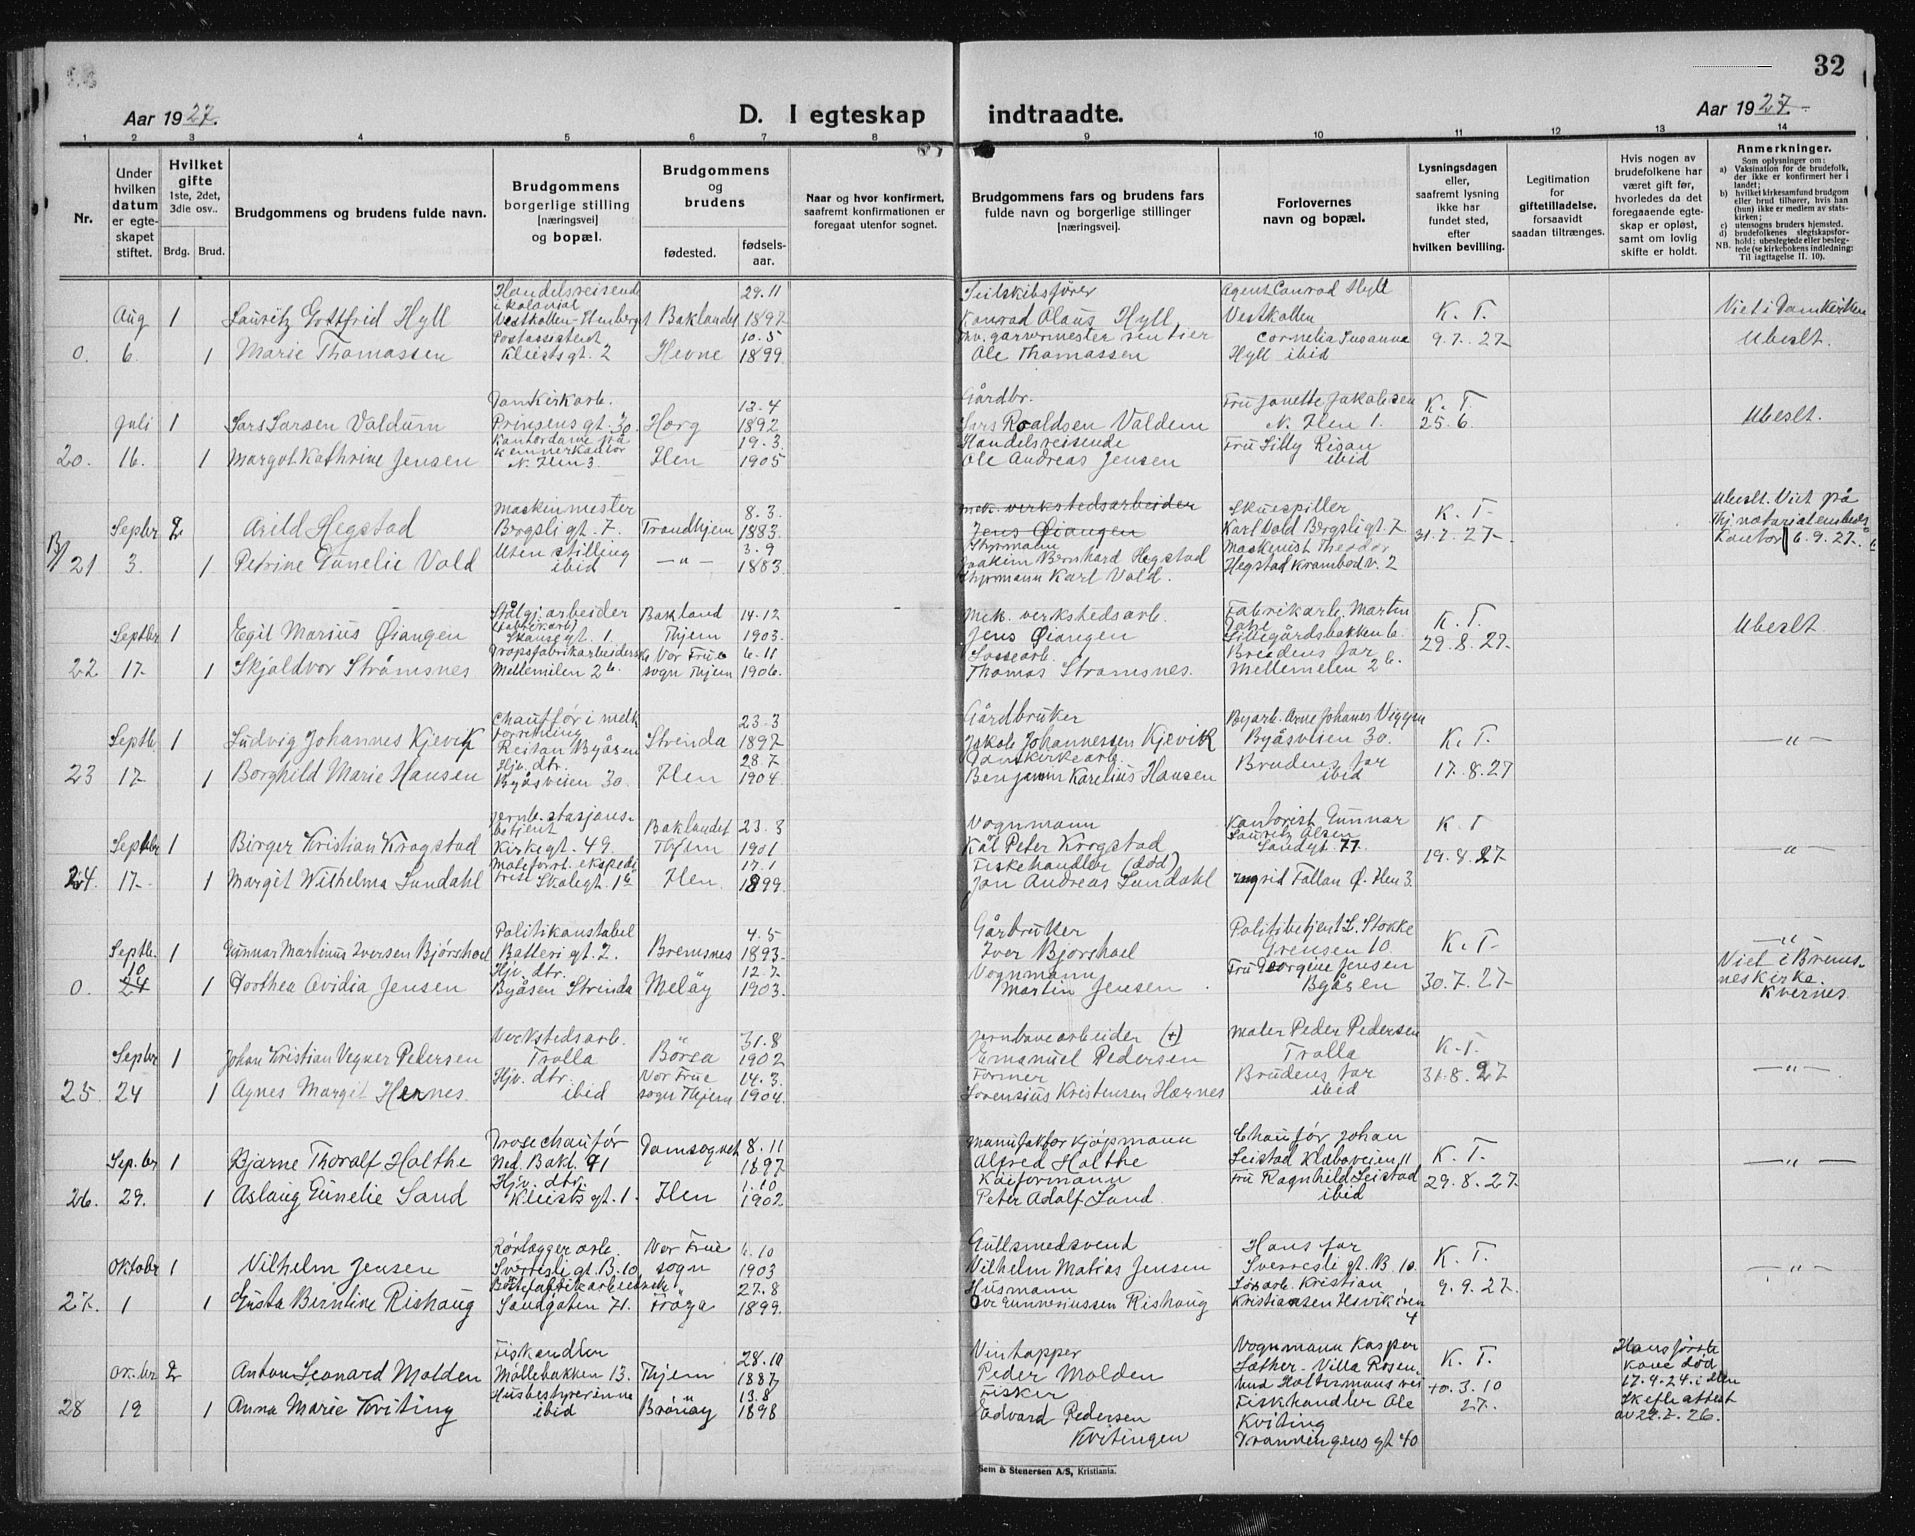 32
Aar 1927.
D. I egteskap indtraadte.
Aar 1927
1 2 3 4 5 6 7 8 9 10 11 12 13 14
Nr.
Under hvilken datum er egteskapet stiftet.
Hvilket gifte 1ste, 2det, 3die osv..
Brdg. Brud.
Brudgommens og brudens fulde navn.
Brudgommens borgerlige stilling [næringsvei] og bopæl.
Brudgommens og brudens
fødested. fødselsaar.
Naar og hvor konfirmert, saafremt konfirmationen er foregaat utenfor sognet.
Brudgommens fars og brudens fars fulde navn og borgerlige stillinger [næringsvei].
Forlovernes navn og bopæl.
Lysningsdagen eller, saafremt lysning ikke har fundet sted, efter hvilken bevilling.
Legitimation for giftetilladelse, forsaavidt saadan tiltrænges.
Hvis nogen av brudefolkene har været gift før, hvorledes da det foregaaende egteskap er opløst, samt om lovlig skifte er holdt.
Anmerkninger.
Som oplysninger om:
a) Vaksination for de brudefolk, der ikke er konfirmert her i landet;
b) hvilket kirkesamfund brudgom eller brud tilhører, hvis han (hun) ikke er medlem av statskirken;
c) utensogns bruders hjemsted.
d) brudefolkenes slegtskapsforhold: ubeslegtede eller beslegtede (se kirkebokens indledning:
NB. Til iagttagelse II. 10).
Handelsreisende 29.11 Seilskibsfører Agent Conrad Hyll
i kolonial
Aug 1 Lauritz Gottfrid Hyll Baklandet 1897 Konrad Olaus Hyll Vestkollen K. T. Viet i Domkirken
Postassistent 10.5 garvermester rentier Cornelia Susanna
0. 6. 1 Marie Thomassen Kleists gt. 2 Hevne 1899 Ole Thomassen Hyll ibid 9.7.27 Ubeslt.
Domkirkearb. 13-4 Gårdbr. Fru Janette Jakobsen
Juli 1 Lars Larsen Valdum Prinsens gt. 30 Horg 1892 Lars Roaldsen Valdem N. Ilen 1. K. T. 25.6. Ubeslt.
Kontordame på 19.3 Handelsreisende Fru Lilly Risan
kemnerkontor
20. 16. 1 Margot Kathrine Jensen N. Ilen 3 Ilen 1905 Ole Andreas Jensen ibid
Maskinmester 8.3. mek. verkstedsarbeider Skuespiller Ubeslt. Viet på
Septbr 2 Arild Hegstad Bergsli gt. 7. Trondhjem 1883 Jens Øiangen Karl Vold Bergsli gt. 7 K. T. 31.7.27 Thj notarialembeds
Uten stilling 3.9 Styrmann Maskinist Theodor kontor 6.9.27.
21 3. 1 Petrine Gunelie Vold ibid — " — 1883 Joakim Bernhard Hegstad Hegstad Krambod v. 2
Styrmann Karl Vold.
Stålgj. arbeider Bakland 14.12 Mek. verkstedsarb. Fabrikarb. Martin
Septbr 1 Egil Marius Øiangen Skanse gt. 1. Thjem 1903. Jens Øiangen Lillegårdsbakken 6. K. T. 29.8.27 Ubeslt.
Dropsfabrikarbeiderske Vor Frue 6.11 Lossearb. Brudens far
22 17. 1 Skjaldvor Strømsnes Mellemilen 26. sogn Thjem 1906. Thomas Stromsnes. Mellemilen 26.
Chauffør i melk 23.3 Gårdbruker Byarb. Arne Johanes Viggen
forretning
Septbr 1 Ludvig Johannes Kjevik Reitan Byåsen Strinda 1897 Jakob Johannessen Kjevik Byåsveien 30. K. T. — " —
Hjv. dtr. 28.7 Domkirkearb. Brudens far
23 17 1 Borghild Marie Hansen Byåsveien 30. Ilen 1904 Benjamin Karelius Hansen ibid 17.8.27
jernb. stasjons- Baklandet 23.3 Vognmann Kontorist Gunnar
betjent
Septbr 1 Birger Kristian Krogstad Kirkegt. 49. Thjem 1901 Kål Peter Krogstad Lauritz Olsen Sandgt. 77 K. T — " —
17.1 Fiskehandler (død) 19.8.27
24. 17. 1 Margit Wilhelma Sundahl trise Skolegt. 1b Ilen 1899. Jon Andreas Sundahl Ingrid Fallan Ø. Ilen 3.
Politikonstabel 4.5 Gårbruker Politibetjent L. Stokke
Septbr. 1 Gunnar Martinus Iversen Bjørshoel Batteri gt. 2. Bremsnes 1893. Iver Bjorshoel Grensen 10 K. T. — " —
10 Hjv. dtr. 12.7 Vognmann Fru Georgine Jensen Viet i Brems-
0. 24 1 Dorthea Ovidia Jensen Byåsen Strinda Meløy 1903. Martin Jensen. Byåsen 30.7.27 neskirke. Kvernes.
Verkstedsarb. 31.8 Jernbanearbeider (+) Maler Peder Pedersen
Septbr 1 Johan Kristian Vegner Pedersen Trolla Börsa 1902 Emanuel Pedersen Trolla K. T.
Hjv. dtr. Vor Frue 14.3. Former Brudens far 31.8.27 — " —
25. 24 1 Agnes Margit Hernes. ibid sogn Thjem 1904. Lorensius Kristensen Hærnes ibid
Drosechauför Domsognet 8.11 Manufakturkjøpmann Chauför Johan
Sep.br 1 Bjarne Thoralf Holthe Ned. Bakl. 91 1897 Alfred Holthe Leistad Klæboveien 11 K. T. — " —
Hjv. dtr. 1.10 Kaiformann Fru Ragnhild Leistad
26. 29. 1 Aslaug Gunelie Sand Kleists gt. 1. Ilen 1902 Peter Adolf Sand. ibid 29.8.27
Rörlegger arb. Vor Frue 6.10 Gullsmedsvend Hans far
Oktobr 1 Vilhelm Jensen Sverresli gt. B. 10. sogn 1903 Vilhelm Matias Jensen Sverresli gt. B. 10. K. T. — " —
27.8 Husmann Kristian
27. 1 1 Gusta Berntine Rishaug Sandgaten 71. Fröya 1899. Ove Gunneriussen Rishaug Kristiansen 4 9.9.27.
Fiskandler 28.10 Vintapper Vognmann Kasper Hans første
Ok.br 2 Anton Leonard Molden Møllebakken 13. Thjem 1887 Peder Molden Sæther. Villa Rosen- K. T. kone död
Husbestyrerinne 13.8 Fisker lund Holtermans vei 17.4.24. i Ilen
28 19 1 Anna Marie Kviting ibid Brönöy 1898 Edvard Pedersen Fiskhandler Ole 10 27. Skifteattest
Kvitingen Kviting av 22.7.26.
Tranningens gt 40
Sem & Stenersen A/S, Kristiania.